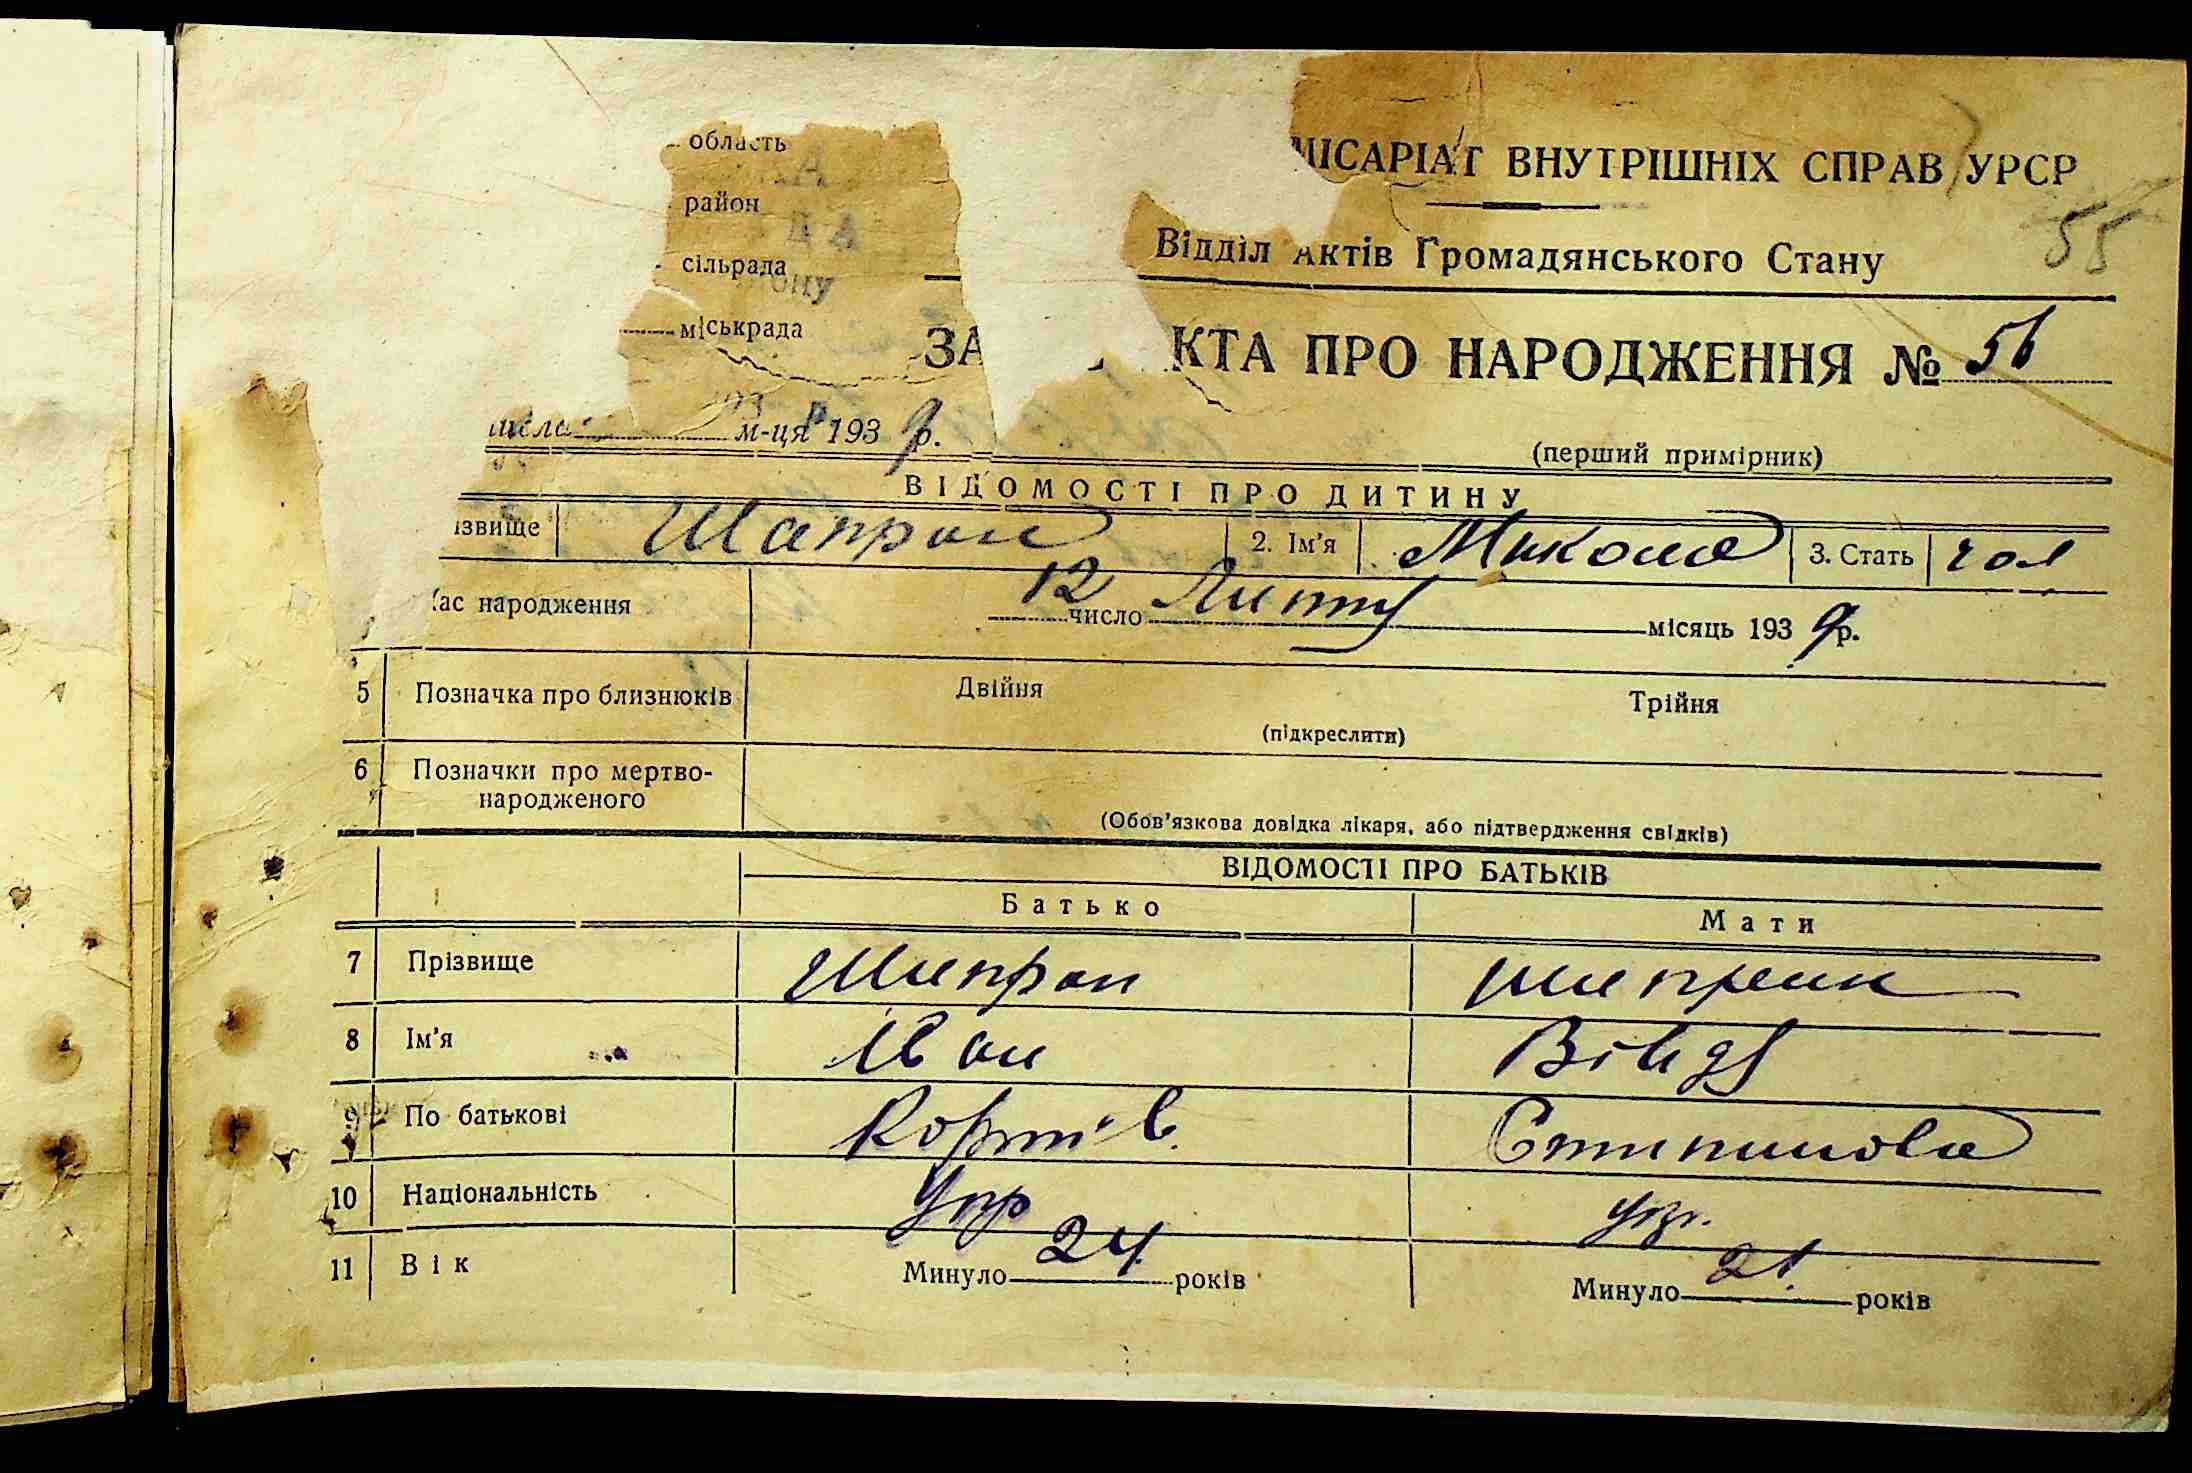 область
МІСАРІАТ ВНУТРІШНІХ СПРАВ УРСР
район
55
Відділ Актів Громадянського Стану
сільрада
міськрада
ЗА КТА ПРО НАРОДЖЕННЯ № 56
числа м-ця 193 9 р.
(перший примірник)
ВІДОМОСТІ ПРО ДИТИНУ
ізвище Шапран 2. Ім'я Микола 3. Стать чол
Час народження 12 число Лютий місяць 193 9 р.
5 Позначка про близнюків Двійня Трійня
(підкреслити)
6 Позначки про мертво-
народженого
(Обов'язкова довідка лікаря, або підтвердження свідків)
ВІДОМОСТІ ПРО БАТЬКІВ
Батько Мати
7 Прізвище Шапран Шапран
8 Ім'я Іван
9 По батькові Степанова
10 Національність Укр укр.
11 Вік Минуло 24 років Минуло 21 років